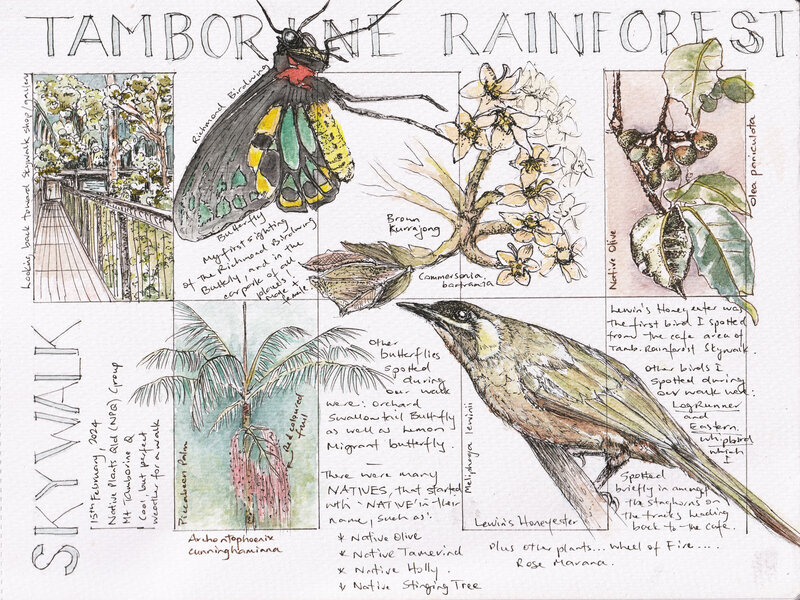 TAMBORINE RAINFOREST
SKYWALK
Looking back toward Skywalk shop/gallery
Richmond Birdwing
Butterfly
My first sighting
of the Richmond Birdwing
Butterfly, and in the
carpark of all
places!
Male &
female
Brown
Kurrajong
Commersonia
bartramia
Native Olive
Olea paniculata
15th February, 2024
Native Plants Qld (NPQ) Group
Mt Tamborine Q
Cool, but perfect
weather for a walk
Piccabeen Palm
Red coloured
fruit
Archontophoenix
cunninghamiana
Other
butterflies
spotted
during
our walk
were: Orchard
Swallowtail Butterfly
as well as Lemon
Migrant butterfly.
There were many
NATIVES, that started
with 'NATIVE' in their
name, such as:
* Native Olive
* Native Tamerind
* Native Holly.
* Native Stinging Tree
Meliphaga lewinii
Lewin's Honeyeater
Lewin's Honeyeater was
the first bird I spotted
from the cafe area of
Tamb. Rainforest Skywalk.
Other birds I
spotted during
our walk were:
LogRunner
and
Eastern
whipbird
which I
Spotted
briefly in amongst
the staghorns on
the tracks heading
back to the cafe.
Plus other plants... Wheel of Fire....
Rose Marara.